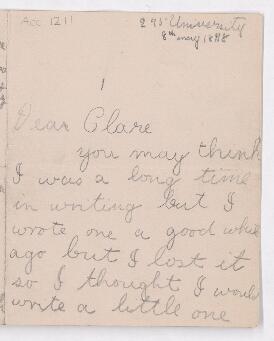 Acc 1211
295 University
8th may 1888
1
Dear Clare
you may think
I was a long time
in writing but I
wrote one a good while
ago but I lost it
so I thought I would
write a little one